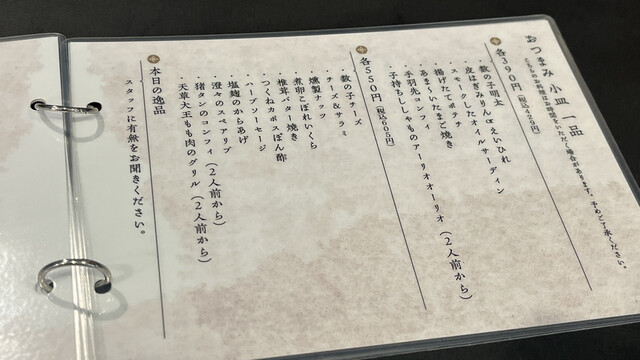 おつまみ 小皿 一品
とりものお料理はお時間をいただく場合があります。予めご了承ください。
各390円(税込429円)
・数の子明太
・皮はぎみりんorえいひれ
・スモークしたオイルサーディン
・揚げたてポテチ
・あま〜いたまご焼き
・手羽先コンフィ
・子持ちししゃものアーリオオーリオ(2人前から)
各550円(税込605円)
・数の子チーズ
・チーズ&サラミ
・燻製ナッツ
・煮卵こぼれいくら
・椎茸バター焼き
・つくねカポスぽん酢
・ハーブソーセージ
・塩麹のからあげ
・澄々のスペアリブ
・猪タンのコンフィ(2人前から)
・天草大王もも肉のグリル(2人前から)
本日の逸品
・スタッフに有無をお聞きください。